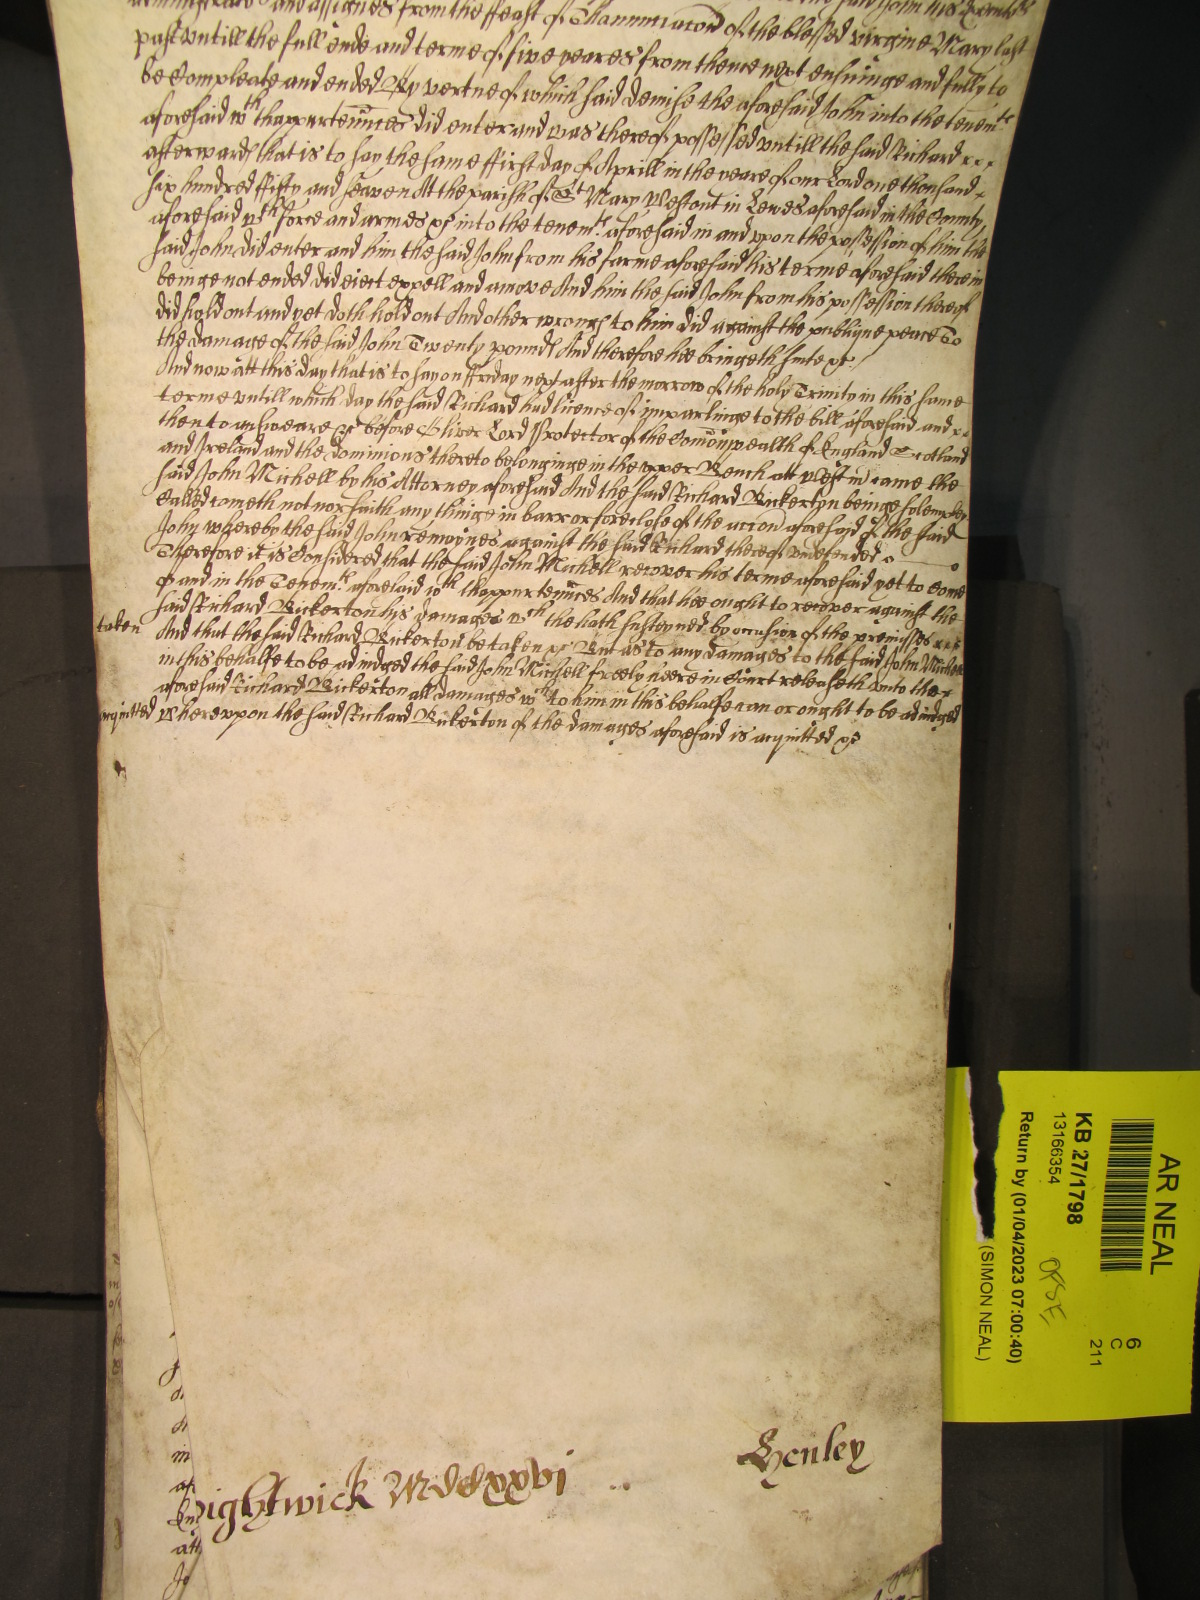 and assignes from the ffeast of Thannunciacon of the blessed virgine Mary last
past untill the full ende and terme of five yeares from thence next ensuinge and fully to
be Compleate and ended By vertue of which said demise the aforesaid John into the tenemts
aforesaid wth thappurtennces did enter and was thereof possessed untill the said Richard
afterwards that is to say the same ffirst day of Aprill in the yeare of our Lord one thousand
six hundred ffifty and seaven Att the parish of St Mary Westout in Lewes aforesaid in the County
aforesaid wth force and armes &c into the tenemts aforesaid in and uppon the possession of him the
said John did enter and him the said John from his farme aforesaid his terme aforesaid therein
beinge not ended did eiect expell and amove And him the said John from his possession thereof
did hold out and yet doth hold out And other wrongs to him did against the publique peace To
the damage of the said John Twenty pounds And therefore hee bringeth suite &c /
And now att this day that is to say on ffryday next after the morrow of the holy Trinity in this same
terme untill which day the said Richard had licence of imparlinge to the bill aforesaid and
then to answeare &c before Oliver Lord Protector of the Comonwealth of England Scotland
and Ireland and the dominions thereto belonginge in the upper Bench att Westmr came the
said John Michell by his Attorney aforesaid And the said Richard Bickerton beinge solemnly
called cometh not nor saith any thinge in barr or foreclose of the accon aforesaid of the said
John whereby the said John remaynes against the said Richard thereof undefended
Therefore it is Considered that the said John Michell recover his terme aforesaid yet to come
of and in the Tenemts aforesaid wth thappurtennces And that hee ought to recover against the
said Richard Bickerton his damages wch he hath susteyned by occasion of the premisses
taken And that the said Richard Bickerton be taken &c But as to any damages to the said John Michell
in this behalfe to be adiudged the said John Michell freely heere in Court releaseth unto the
aforesaid Richard Bickerton all damages wch to him in this behalfe can or ought to be adiudged
acquitted Whereuppon the said Richard Bickerton of the damages aforesaid is acquitted &c
Henley
ightwick MDCxxvi
AR NEAL
6
C
211
KB 27/1798
13166354
Return by (01/04/2023 07:00:40)
(SIMON NEAL)